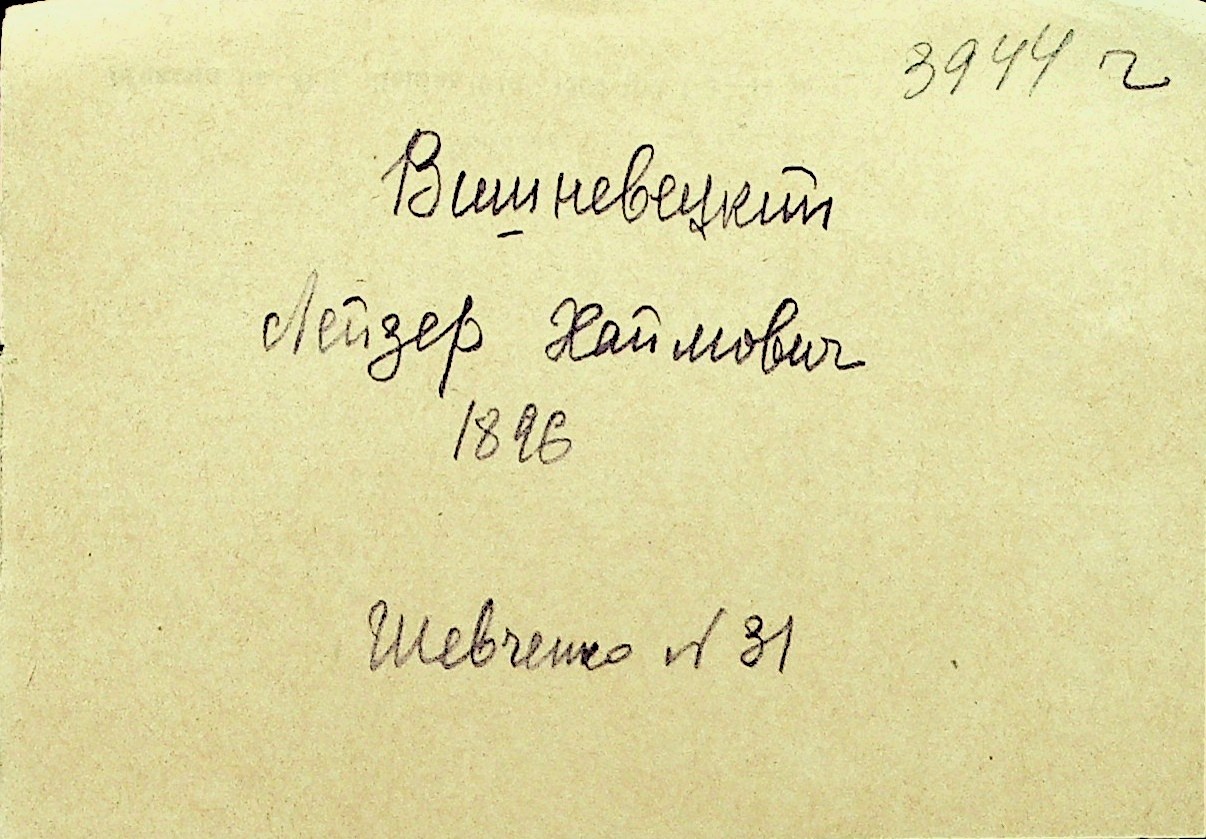 3944 г
Вишневецкий
Лейзер Хаймович
1896
Шевченко N 31